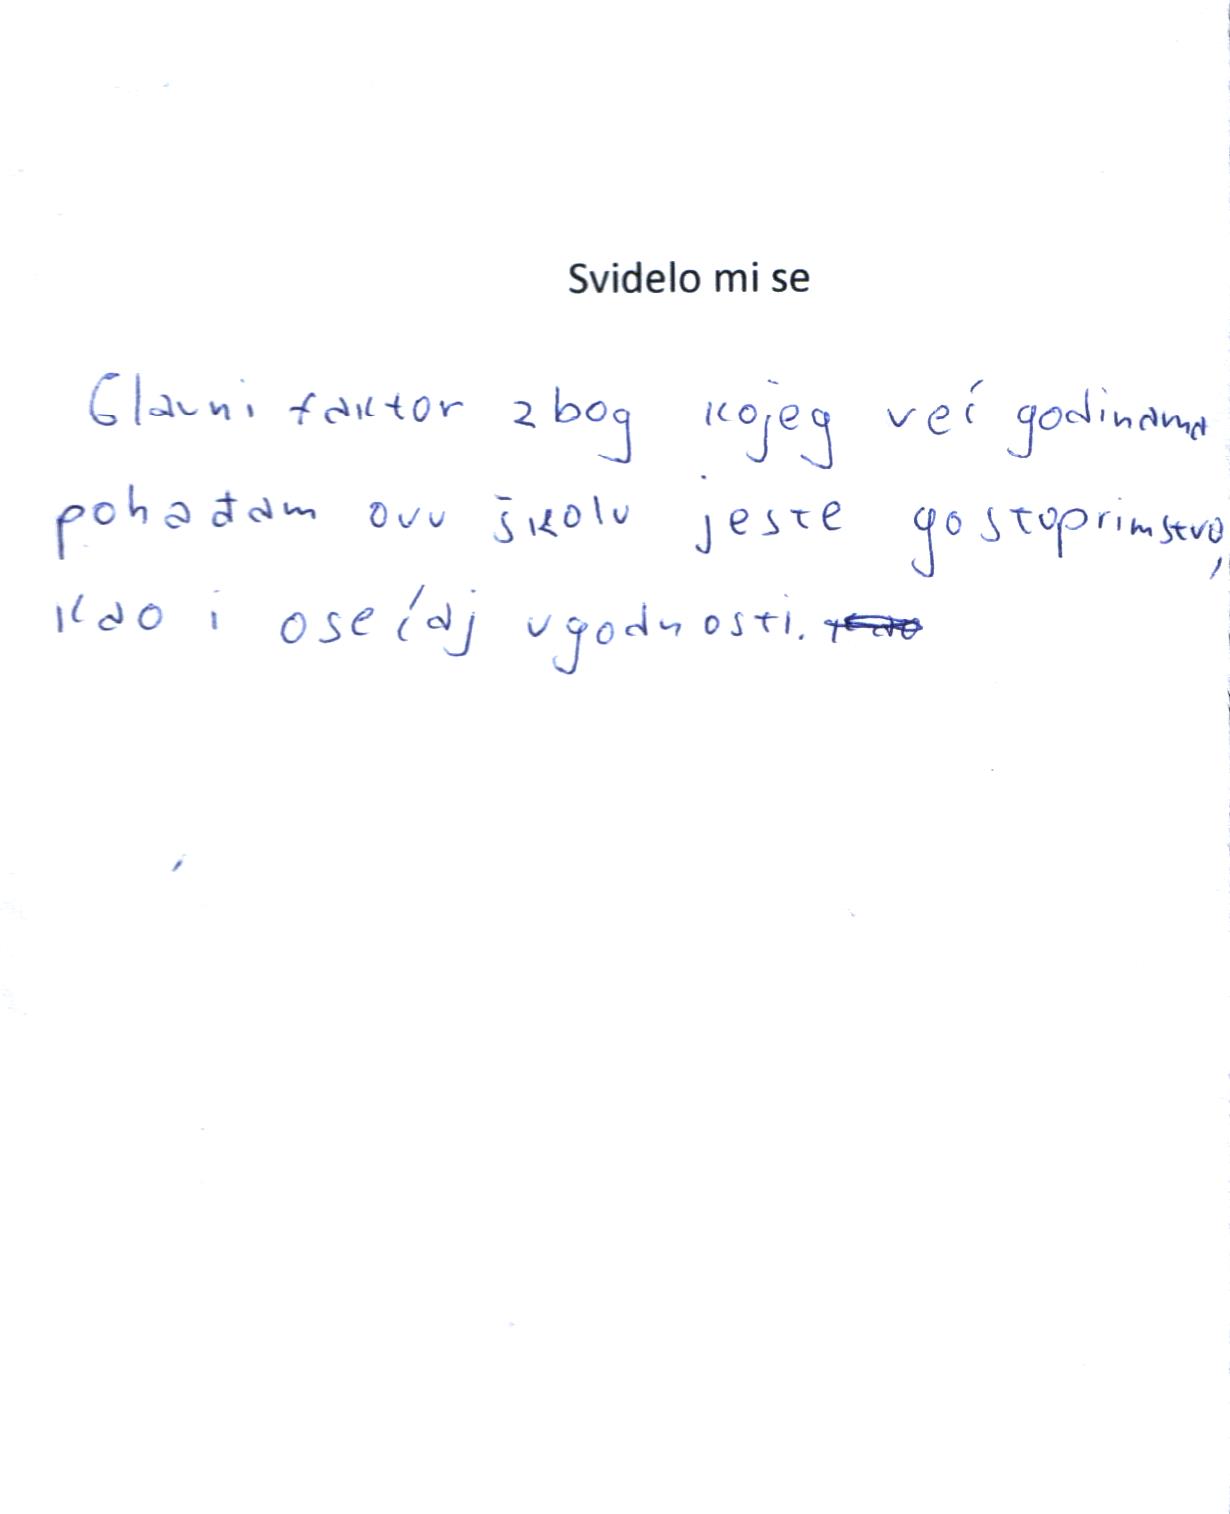 Svidelo mi se
Glavni faktor zbog kojeg već godinama
pohađam ovu školu jeste gostoprimstvo,
kao i osećaj ugodnosti.